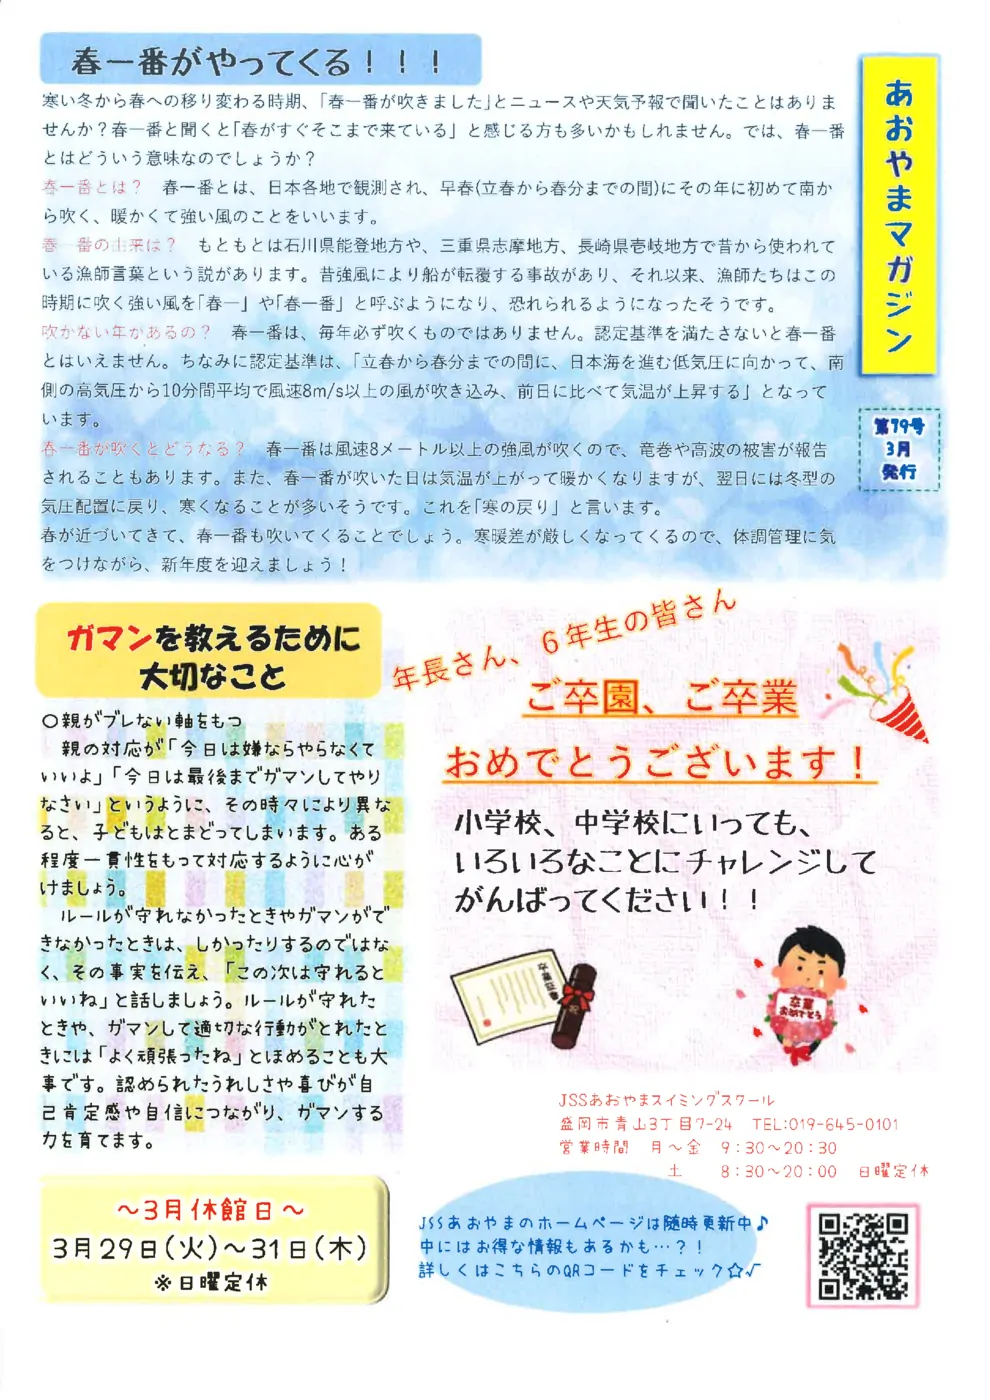 春一番がやってくる！！！
寒い冬から春への移り変わる時期、「春一番が吹きました」とニュースや天気予報で聞いたことはありま
せんか？春一番と聞くと「春がすぐそこまで来ている」と感じる方も多いかもしれません。では、春一番
とはどういう意味なのでしょうか？
春一番とは？　春一番とは、日本各地で観測され、早春(立春から春分までの間)にその年に初めて南か
ら吹く、暖かくて強い風のことをいいます。
春一番の由来は？　もともとは石川県能登地方や、三重県志摩地方、長崎県壱岐地方で昔から使われて
いる漁師言葉という説があります。昔強風により船が転覆する事故があり、それ以来、漁師たちはこの
時期に吹く強い風を「春一」や「春一番」と呼ぶようになり、恐れられるようになったそうです。
吹かない年があるの？　春一番は、毎年必ず吹くものではありません。認定基準を満たさないと春一番
とはいえません。ちなみに認定基準は、「立春から春分までの間に、日本海を進む低気圧に向かって、南
側の高気圧から10分間平均で風速8m/s以上の風が吹き込み、前日に比べて気温が上昇する」となって
います。
春一番が吹くとどうなる？　春一番は風速8メートル以上の強風が吹くので、竜巻や高波の被害が報告
されることもあります。また、春一番が吹いた日は気温が上がって暖かくなりますが、翌日には冬型の
気圧配置に戻り、寒くなることが多いそうです。これを「寒の戻り」と言います。
春が近づいてきて、春一番も吹いてくることでしょう。寒暖差が厳しくなってくるので、体調管理に気
をつけながら、新年度を迎えましょう！
あおやまマガジン
第79号
3月
発行
ガマンを教えるために
大切なこと
〇親がブレない軸をもつ
親の対応が「今日は嫌ならやらなくて
いいよ」「今日は最後までガマンしてやり
なさい」というように、その時々により異な
ると、子どもはとまどってしまいます。ある
程度一貫性をもって対応するように心が
けましょう。
ルールが守れなかったときやガマンがで
きなかったときは、しかったりするのではな
く、その事実を伝え、「この次は守れると
いいね」と話しましょう。ルールが守れた
ときや、ガマンして適切な行動がとれたと
きには「よく頑張ったね」とほめることも大
事です。認められたうれしさや喜びが自
己肯定感や自信につながり、ガマンする
力を育てます。
年長さん、6年生の皆さん
ご卒園、ご卒業
おめでとうございます！
小学校、中学校にいっても、
いろいろなことにチャレンジして
がんばってください！！
卒業証書
祝
卒業
おめでとう
JSSあおやまスイミングスクール
盛岡市青山3丁目7-24　TEL:019-645-0101
営業時間　月～金　9:30～20:30
土　8:30～20:00　日曜定休
～3月休館日～
3月29日(火)～31日(木)
※日曜定休
JSSあおやまのホームページは随時更新中♪
中にはお得な情報もあるかも…？！
詳しくはこちらのQRコードをチェック☆√